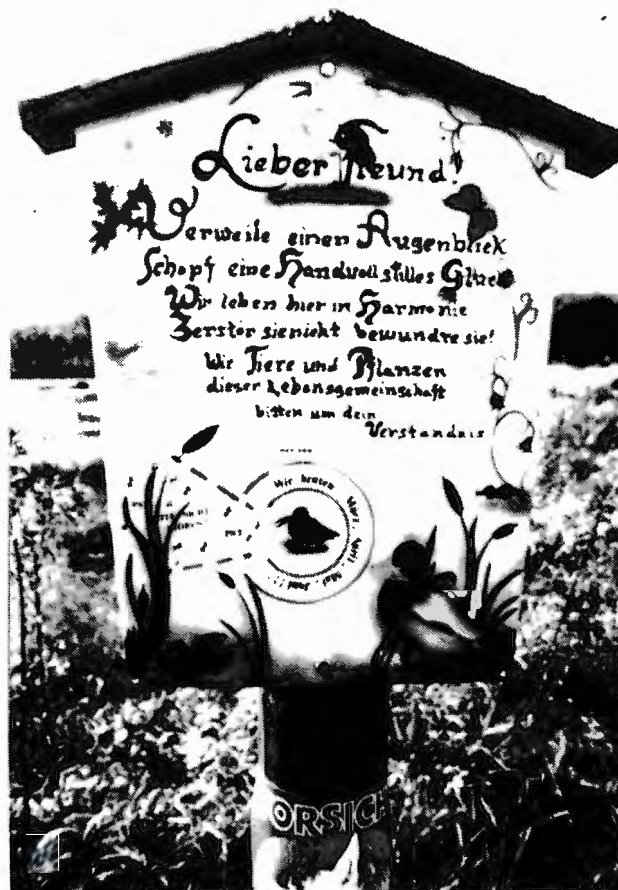 Lieber Freund!
Verweile einen Augenblick
Schöpf eine Handvoll stilles Glück
Wir leben hier in Harmonie
Zerstör sie nicht bewundre sie!
Wir Tiere und Pflanzen
dieser Lebensgemeinschaft
bitten um dein
Verständnis
Wir brüten März, April, Mai, Juni!!!
ORSICH